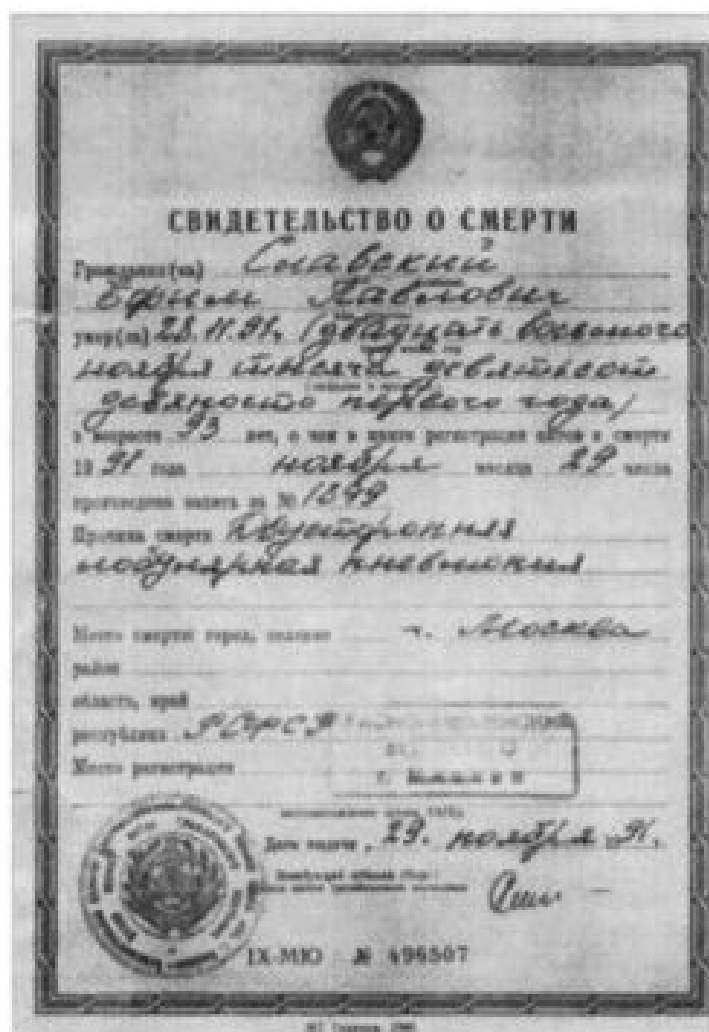 СВИДЕТЕЛЬСТВО О СМЕРТИ
Гражданин(ка) Славский
Ефим Павлович
умер(ла) 28.11.91. (двадцать восьмого
ноября тысяча девятьсот
девяносто первого года)
в возрасте 93 лет, о чем в книге регистрации актов о смерти
19 91 года ноября месяца 29 числа
произведена запись за № 1899
Причина смерти двусторонняя
лобулярная пневмония
Место смерти: город, селение г. Москва
район
область, край
республика РСФСР
Место регистрации
г. Москвы
Дата выдачи 29. ноября 1991.
IX-МЮ № 496507